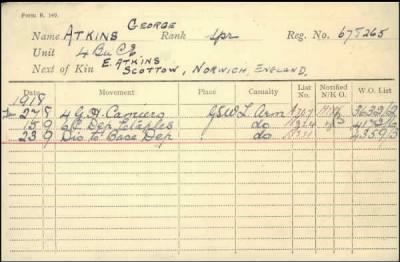 Form R. 149.
Name ATKINS George Rank Spr Reg. No. 675265
Unit 4 Bn CE
Next of Kin E. ATKINS
SCOTTOW, NORWICH, ENGLAND.
Date Movement Place Casualty List No. Notified N/K O. W.O. List
1918
27 8 4 G.H. Camiers GSW L. Arm
15 9 6 C. Dep Etaples do
23 9 Dis to Base Dep do